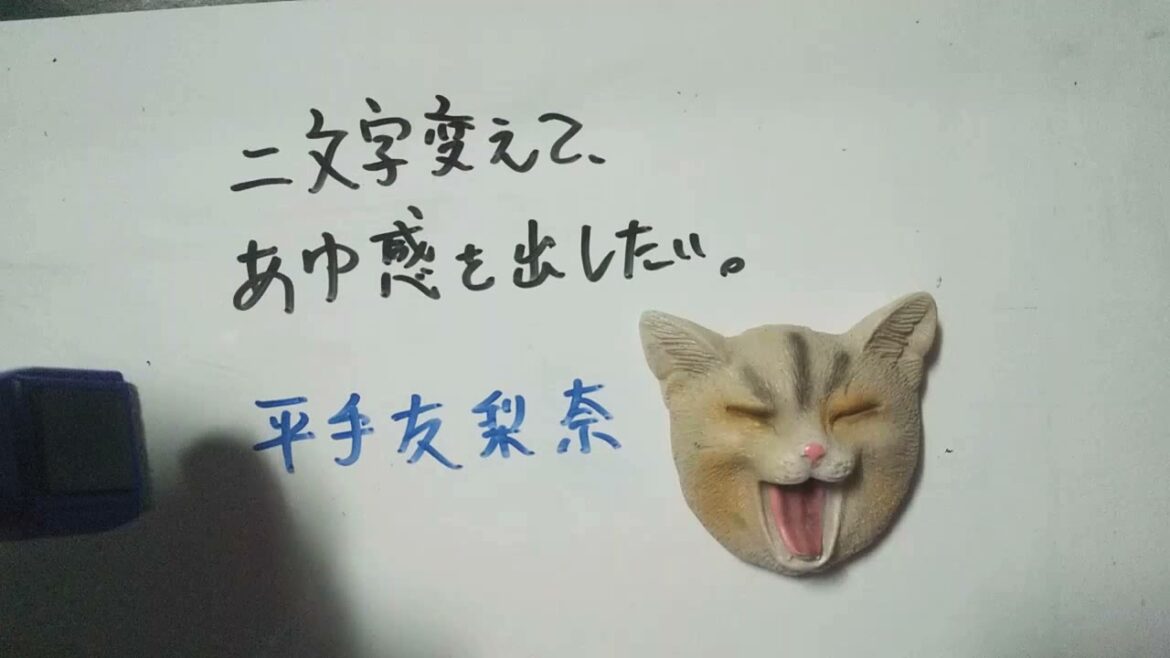 二文字変えて、
あゆ感を出したい。
平手友梨奈